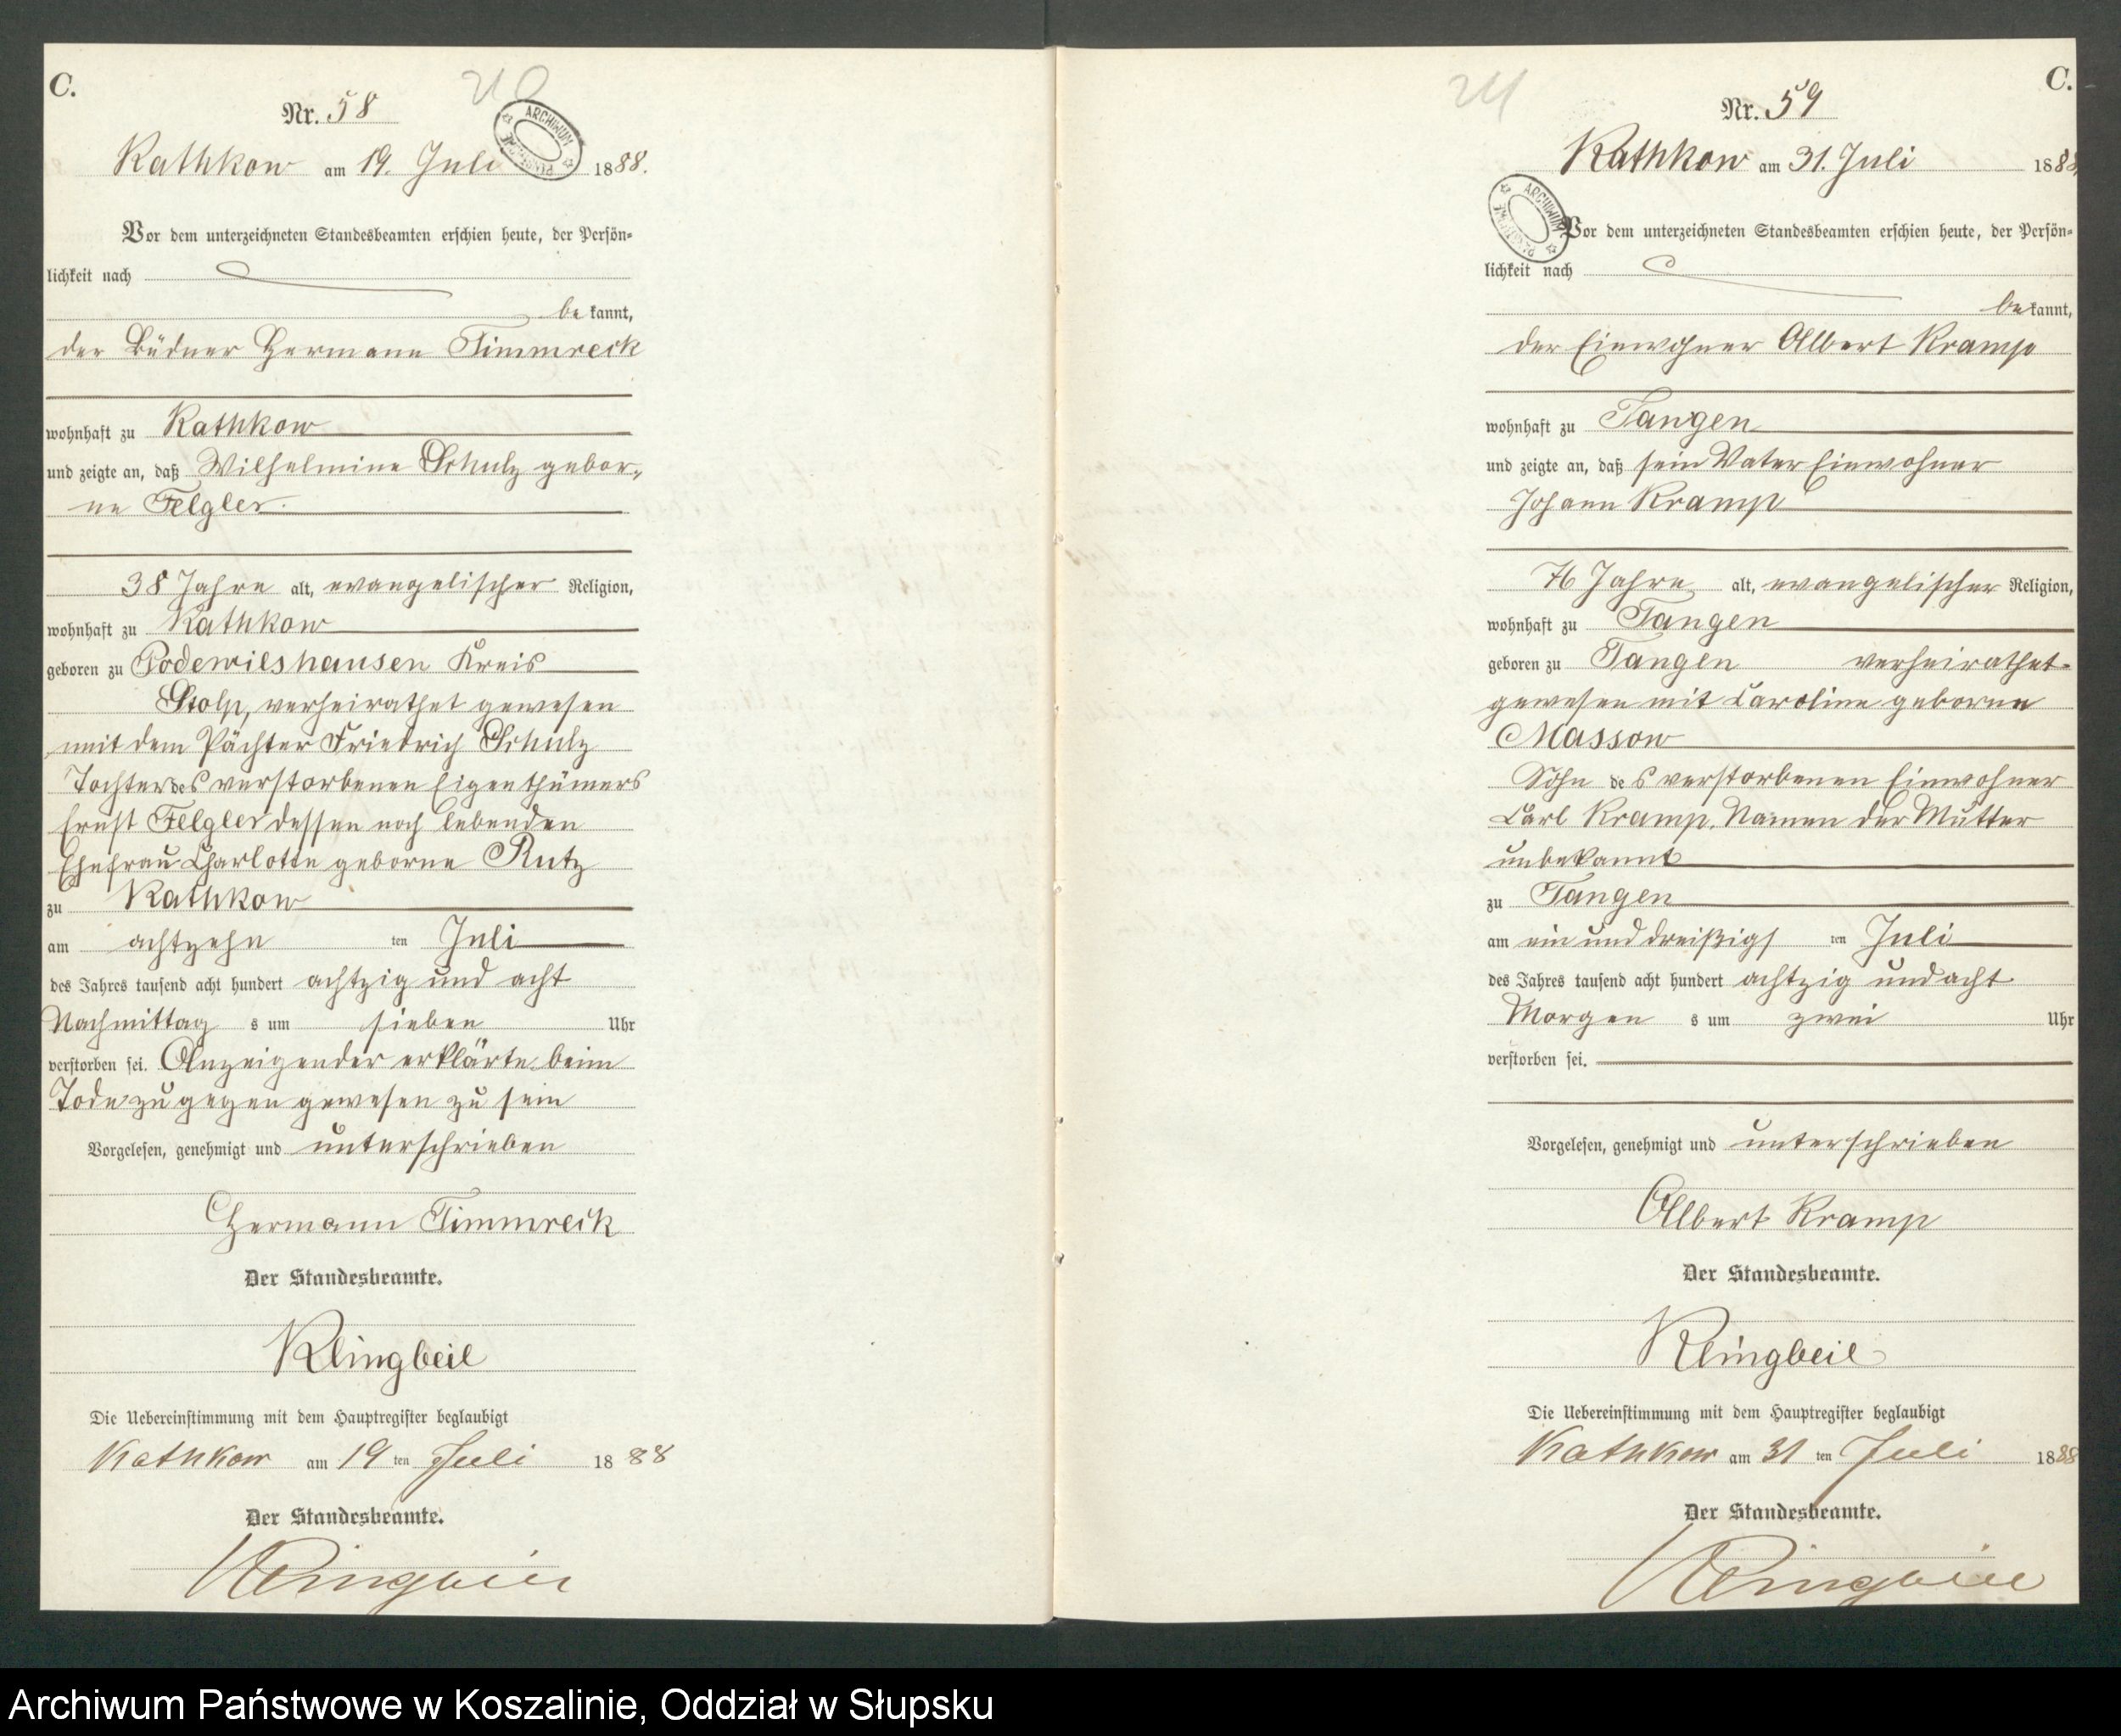 C.
210
Nr. 58
ARCHIWUM
Rathkow am 19. Juli 1888.
Vor dem unterzeichneten Standesbeamten erschien heute, der Persön-
lichkeit nach
be kannt,
der Büdner Hermann Timmreck
wohnhaft zu Rathkow
und zeigte an, daß Wilhelmine Schulz gebor-
ne Felgler.
38 Jahre alt, evangelischer Religion,
wohnhaft zu Rathkow
geboren zu Podewilshausen Kreis
Stolp, verheirathet gewesen
mit dem Pächter Friedrich Schulz
Tochter des verstorbenen Eigenthümers
Ernst Felgler dessen noch lebenden
Ehefrau Charlotte geborne Rutz
zu Rathkow
am achtzehn ten Juli
des Jahres tausend acht hundert achtzig und acht
Nachmittag s um sieben Uhr
verstorben sei. Anzeigender erklärte beim
Tode zugegen gewesen zu sein
Vorgelesen, genehmigt und unterschrieben
Hermann Timmreck
Der Standesbeamte.
Klingbeil
Die Uebereinstimmung mit dem Hauptregister beglaubigt
Rathkow am 19 ten Juli 1888
Der Standesbeamte.
Klingbeil
C.
211
Nr. 59
Rathkow am 31. Juli 1888.
ARCHIWUM
Vor dem unterzeichneten Standesbeamten erschien heute, der Persön-
lichkeit nach
be kannt,
der Einwohner Albert Kramp
wohnhaft zu Tangen
und zeigte an, daß sein Vater Einwohner
Johann Kramp
76 Jahre alt, evangelischer Religion,
wohnhaft zu Tangen
geboren zu Tangen verheirathet
gewesen mit Caroline geborne
Massow
Sohn des verstorbenen Einwohner
Carl Kramp. Namen der Mutter
unbekannt
zu Tangen
am ein und dreißigs ten Juli
des Jahres tausend acht hundert achtzig und acht
Morgen s um zwei Uhr
verstorben sei.
Vorgelesen, genehmigt und unterschrieben
Albert Kramp
Der Standesbeamte.
Klingbeil
Die Uebereinstimmung mit dem Hauptregister beglaubigt
Rathkow am 31 ten Juli 1888
Der Standesbeamte.
Klingbeil
Archiwum Państwowe w Koszalinie, Oddział w Słupsku